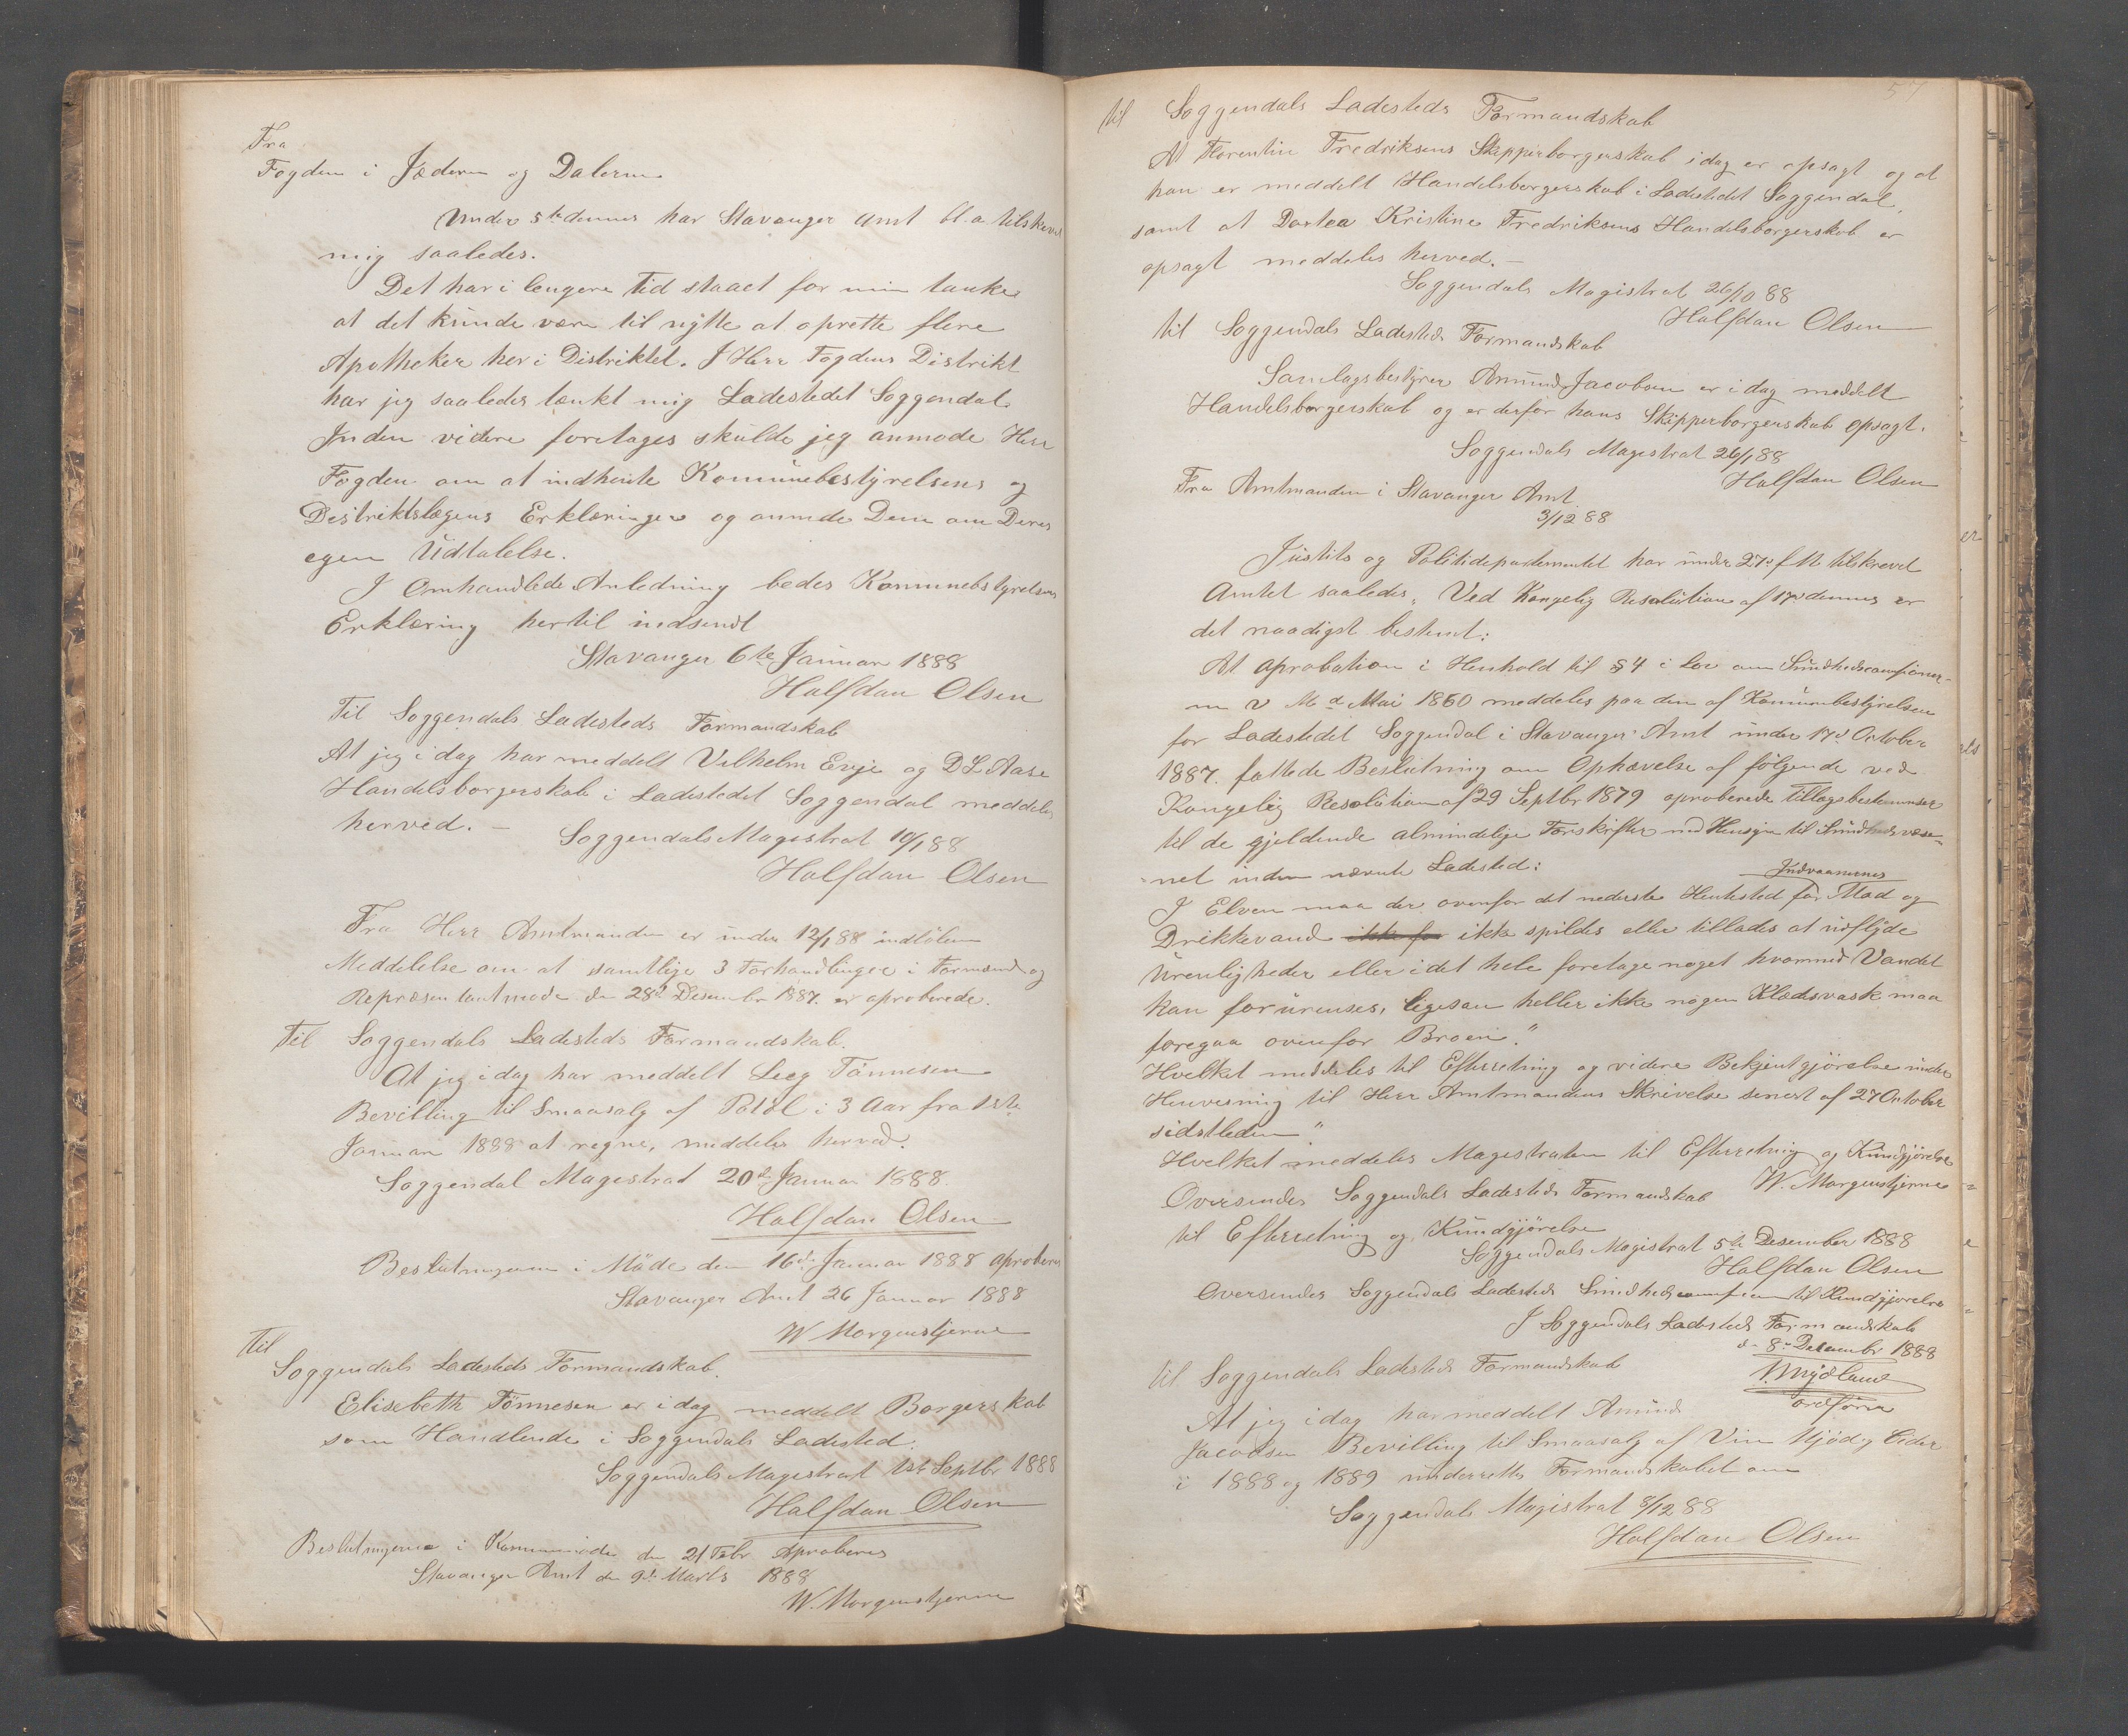 Fra
Fogden i Jæderen og Dalerne
Under 5te dennes har Stavanger Amt bl.a. tilskrevet
mig saaledes.
Det har i lengere Tid staaet for min tanke
at det kunde være til nytte at oprette flere
Apotheker her i Distriktet. I Herr Fogdens Distrikt
har jeg saaledes tænkt mig Ladestedet Soggendal.
Inden videre foretages skulde jeg anmode Herr
Fogden om at indhente Kommunebestyrelsens og
Distriktslægens Erklæringer og anmode Dem om Deres
egen Udtalelse.
I Omhandlede Anledning bedes Kommunebstyrelsens
Erklæring hertil indsendt
Stavanger 6te Januar 1888
Halfdan Olsen
Til Soggendals Ladesteds Formandskab
At jeg i dag har meddelt Vilhelm Evje og D L Aase
Handelsborgerskab i Ladestedet Soggendal meddeles
herved. –
Soggendals Magistrat 10/1 88
Halfdan Olsen
Fra Herr Amtmanden er under 12/1 88 indløben
Meddelelse om at samtlige 3 Forhandlinger i Formænd og
Repræsentantmøde den 28de Desember 1887. er aproberede.
Til Soggendals Ladesteds Formandskab.
At jeg i dag har meddelt Leeg Tönnesen
Bevilling til Smaasalg af Potöl i 3 Aar fra 1ste
Januar 1888 at regne, meddeles herved.
Soggendal Magistrat 20de Januar 1888.
Halfdan Olsen
Beslutningerne i Møde den 16de Januar 1888 aproberes
Stavanger Amt 26 Januar 1888
W Morgenstjerne
Til
Soggendals Ladesteds Formandskab.
Elisebeth Tönnesen er i dag meddelt Borgerskab
som Handlende i Soggendals Ladested.
Soggendals Magistrat 1ste Septbr 1888
Halfdan Olsen
Beslutningerne i Kommunemøde den 21 Febr Aproberes
Stavanger Amt den 9de Marts 1888
W. Morgenstjerne
57
til Soggendals Ladesteds Formandskab
At Florentin Fredriksens Skipperborgerskab idag er opsagt og at
han er meddelt Handelsborgerskab i Ladestedet Soggendal,
samt at Dortea Kristine Fredriksens Handelsborgerskab er
opsagt meddeles herved. –
Soggendals Magistrat 26/10 88
Halfdan Olsen
til Soggendals Ladesteds Formandskab
Samlagsbestyrer Amund Jacobsen er i dag meddelt
Handelsborgerskab og er derfor hans Skipperborgerskab opsagt.
Soggendals Magistrat 26/1 88
Halfdan Olsen
Fra Amtmanden i Stavanger Amt
3/12 88
Justits og Politidepartementet har under 27de f M tilskrevet
Amtet saaledes. Ved Kongelig Resolution af 17de dennes er
det naadigst bestemt:
At aprobation i Henhold til § 4 i Lov om Sundhedscomsioner-
ne Mai 1860 meddeles paa den af Kommunbestyrelsen
for Ladestedet Soggendal i Stavanger Amt under 17de October
1887. fattede Beslutning om Ophævelse af følgende ved
Kongelig Resolution af 29 Septbr 1879 aproberede Tillægsbestemmelser
til de gjeldende almindelige Forskrifter med Hensyn til Sundhedsvæse-
net inden nævnte Ladested:
Indvaanernes
I Elven maa der ovenfor det nederste Hentested for Mad og
Drikkevand ikke for ikke spildes eller tillades at udflyde
Urenligheder eller i det hele foretage noget hvormed Vandet
kan forurenses, ligesom heller ikke nogen Klædsvask maa
foregaa ovenfor Broen."
Hvilket meddeles til Efterretning og videre Bekjentgjörelse under
Henvisning til Herr Amtmandens Skrivelse senest af 27 October
sidstleden."
Hvilket meddeles Magistraten til Efterretning og Kundgjørelse
W. Morgenstjerne
Oversendes Soggendals Ladesteds Formandskab
til Efterretning og Kundgjörelse
Soggendals Magistrat 5te Desember 1888
Halfdan Olsen
Oversendes Soggendals Ladesteds Sundhedscomsion til Kundgjørelse
I Soggendals Ladesteds Formandskab
d. 8de Desember 1888
Mydland
ordfører
til Soggendals Ladesteds Formandskab
At jeg i dag har meddelt Amund
Jacobsen Bevilling til Smaasalg af Vin Mjød og Cider
i 1888 og 1889 underrettes Formandskabet om
Soggendals Magistrat 8/12 88
Halfdan Olsen